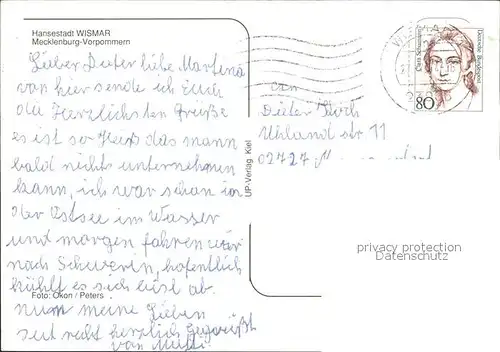 Hansestadt WISMAR
Mecklenburg-Vorpommern
Lieber Dieter liebe Martina
von hier sende ich Euch
die Herzlichsten Grüße
es ist so Heiß das mann
bald nichts unternehmen
kann, ich war schon in
der Ostsee im Wasser
und morgen fahren wir
nach Schwerin, hofentlich
kühlt es sich erst ab.
nun meine Lieben
seit recht herzlich gegrüßt
von
Foto: Okon / Peters
UP-Verlag Kiel
WISMAR
Clara Schumann
Deutsche Bundespost
80
an
Dieter
Uhland str. 11
02727
privacy protection
Datenschutz